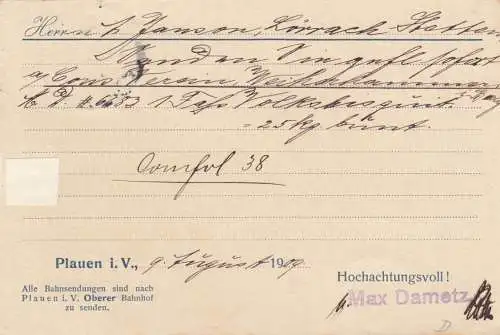 Herrn L. Janson, Lörrach Stetten
Senden Sie gefl. sofort
a/ Cons. Verein,
# 6653 1 Fass Volksbisquit
= 25 kg bunt.
Comfol 38
Plauen i. V., 9. August 1909
Alle Bahnsendungen sind nach
Plauen i. V. Oberer Bahnhof
zu senden.
Hochachtungsvoll!
Max Dametz
D